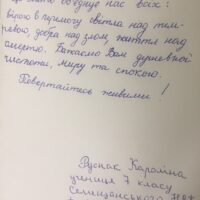 це свято об'єднує нас всіх:
вірою в перемогу світла над тем-
рявою, добра над злом, життя над
смертю. Бажаємо Вам душевної
чистоти, миру та спокою.
Повертайтесь живими!
Руснак Кароліна
учениця 7 класу
Селищанського